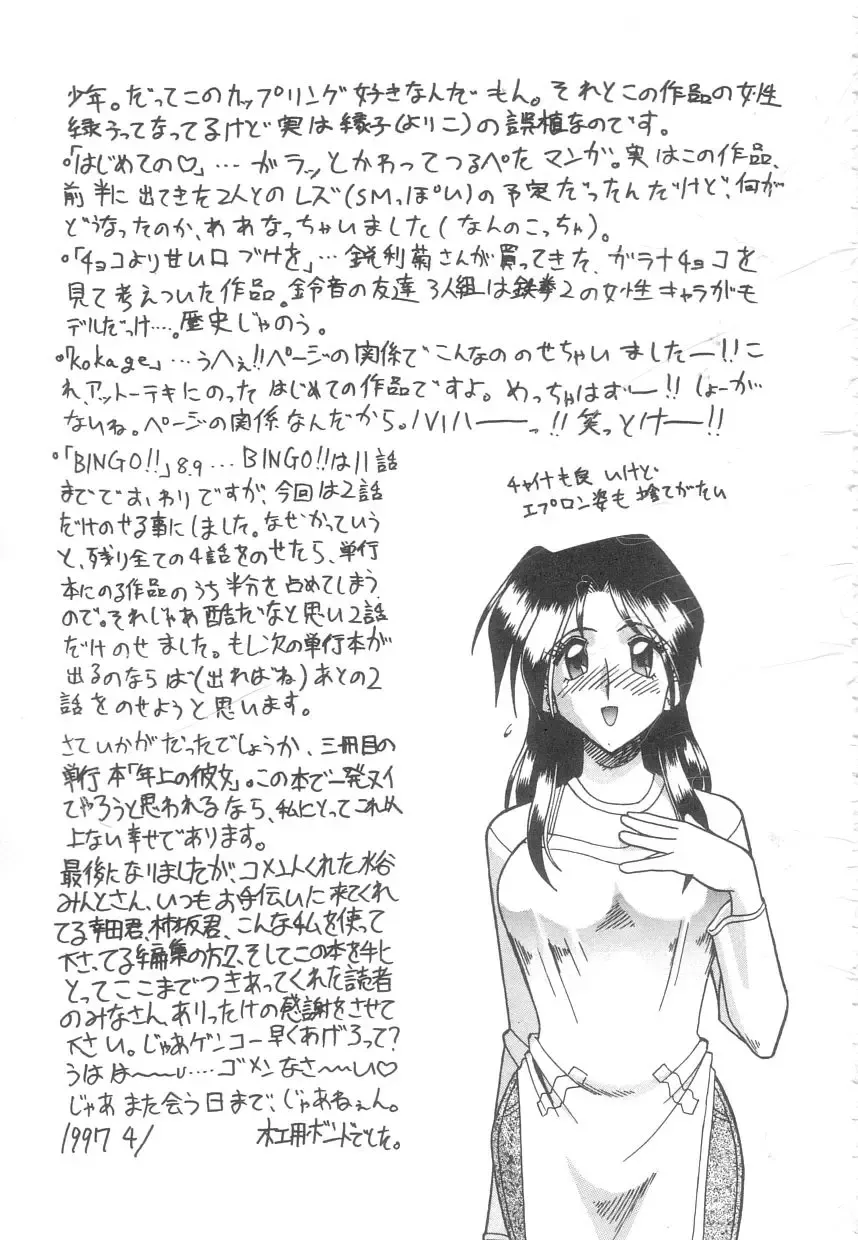 少年。だってこのカップリング好きなんだもん。それとこの作品の女性
縁うってなってるけど実は縁子(よりこ)の誤植なのです。
°「はじめての♡」…ガラッとかわってつるぺたマンガ。実はこの作品、
前半に出てきた2人とのレズ(SMっぽい)の予定だったんだけど、何が
どうなったのか、ああなっちゃいました(なんのこっちゃ)。
°「チョコより甘い口づけを」…鋭利菊さんが買ってきた、ガラナチョコを
見て考えついた作品。鈴音の友達3人組は鉄拳2の女性キャラがモ
デルだっけ…。歴史じゃのう。
°「kokage」…うへぇ!!ページの関係でこんなののせちゃいましたー!!こ
れ、アットーテキにのったはじめての作品ですよ。めっちゃはずー!!しょーが
ないね。ページの関係なんだから。ハイハーーっ!!笑っとけー!!
°「BINGO!!」8.9…BINGO!!は11話
まででおわりですが、今回は2話
だけのせる事にしました。なぜかっていう
と、残り全ての4話をのせたら、単行
本にのる作品のうち半分を占めてしまう
ので。それじゃあ酷だなと思い2話
だけのせました。もし次の単行本が
出るのならば(出ればね)あとの2
話をのせようと思います。
さていかがだったでしょうか、三冊目の
単行本「年上の彼女」。この本で一発ヌイ
てやろうと思われるなら、私にとってこれ以
上ない幸せであります。
最後になりましたが、コメントくれた水谷
みんとさん、いつもお手伝いに来てくれ
てる幸田君、柿坂君、こんな私を使って
下さってる編集の方々、そしてこの本を手に
とってここまでつきあってくれた読者
のみなさん、ありったけの感謝をさせて
下さい。じゃあゲンコー早くあげろって?
うはは〜〜…ゴメンなさ〜い♡
じゃあまた会う日まで、じゃあねぇん。
1997 4/ 木工用ボンドでした。
チャイナも良いけど
エプロン姿も捨てがたい